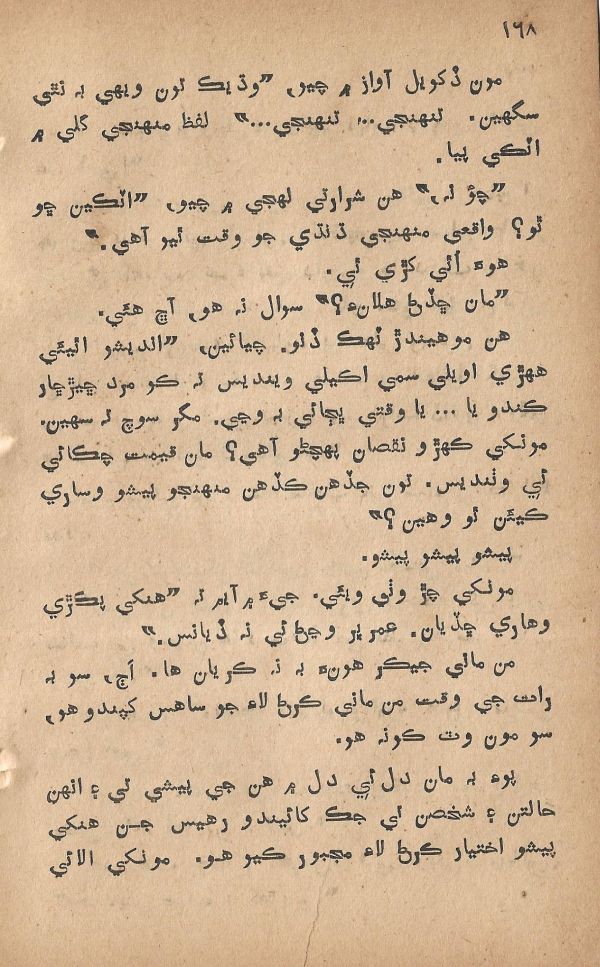 ۱٦۸
مون ڏکويل آواز ۾ چيو، ”وڌيڪ تون ويهي بہ نٿي
سگهين. تنهنجي... تنهنجي...“ لفظ منهنجي ڳلي ۾
اٽڪي پيا.
”چؤ نہ،“ هن شرارتي لهجي ۾ چيو، ”اٽڪين ڇو
ٿو؟ واقعي منهنجي ڌنڌي جو وقت ٿيو آهي.“
هوءَ اُٿي کڙي ٿي.
”مان ڇڏڻ هلانءِ؟“ سوال نہ هو، آڇ هئي.
هن موهيندڙ ٽهڪ ڏنو. چيائين، ”انديشو اٿيئي
ههڙي اويلي سمي اڪيلي وينديس تہ ڪو مرد ڇيڙڇاڙ
ڪندو يا ... يا وقتي ڀڄائي بہ وڃي. مگر سوچ تہ سهين.
مونکي ڪهڙو نقصان پهچڻو آهي؟ مان قيمت چڪائي
ئي وٺنديس. تون جڏهن ڪڏهن منهنجو پيشو وساري
ڪيئن ٿو وهين؟“
پيشو پيشو پيشو.
مونکي چڙ وٺي ويئي. جيءَ ۾ آيم تہ ”هنکي پڪڙي
وهاري ڇڏيان. عمر ڀر وڃڻ ئي نہ ڏيانس.“
من ماني جيڪر هونءَ بہ نہ ڪريان ها. اڄ، سو بہ
رات جي وقت من ماني ڪرڻ لاءِ جو ساهس کپندو هو،
سو مون وٽ ڪونہ هو.
پوءِ بہ مان دل ئي دل ۾ هن جي پيشي تي ۽ انهن
حالتن ۽ شخصن تي جڪ کائيندو رهيس جن هنکي
پيشو اختيار ڪرڻ لاءِ مجبور ڪيو هو. مونکي الائي